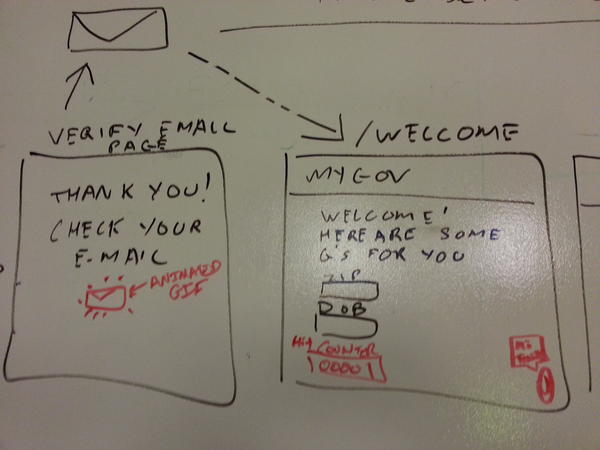 VERIFY EMAIL
PAGE
THANK YOU!
CHECK YOUR
E-MAIL
ANIMATED
GIF
/WELCOME
MYGOV
WELCOME!
HERE ARE SOME
G'S FOR YOU
ZIP
DOB
Hit COUNTER
00001